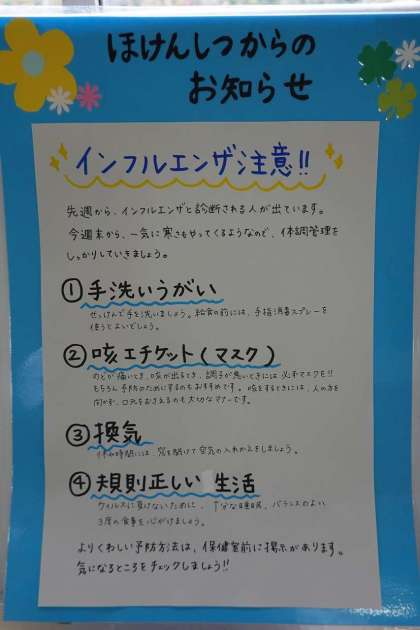 ほけんしつからの
お知らせ
インフルエンザ注意!!
先週から、インフルエンザと診断される人が出ています。
今週末から、一気に寒さもやってくるようなので、体調管理を
しっかりしていきましょう。
①手洗いうがい
せっけんで手を洗いましょう。給食の前には、手指消毒スプレーを
使うとよいでしょう。
②咳エチケット(マスク)
のどが痛いとき、咳が出るとき、調子が悪いときには必ずマスクを!!
もちろん予防のためにするのもおすすめです。咳をするときには、人の方を
向かず、口元をおさえるのも大切なマナーです。
③換気
休み時間には、窓を開けて空気の入れかえをしましょう。
④規則正しい生活
ウイルスに負けないために、十分な睡眠、バランスのよい
3度の食事を心がけましょう。
よりくわしい予防方法は、保健室前に掲示があります。
気になるところをチェックしましょう!!